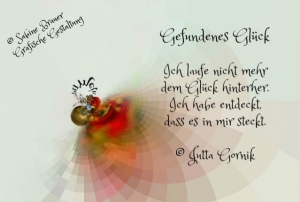 © Sabine Brauer
Grafische Gestaltung
Gefundenes Glück
Ich laufe nicht mehr
dem Glück hinterher.
Ich habe entdeckt,
dass es in mir steckt.
© Jutta Gornik